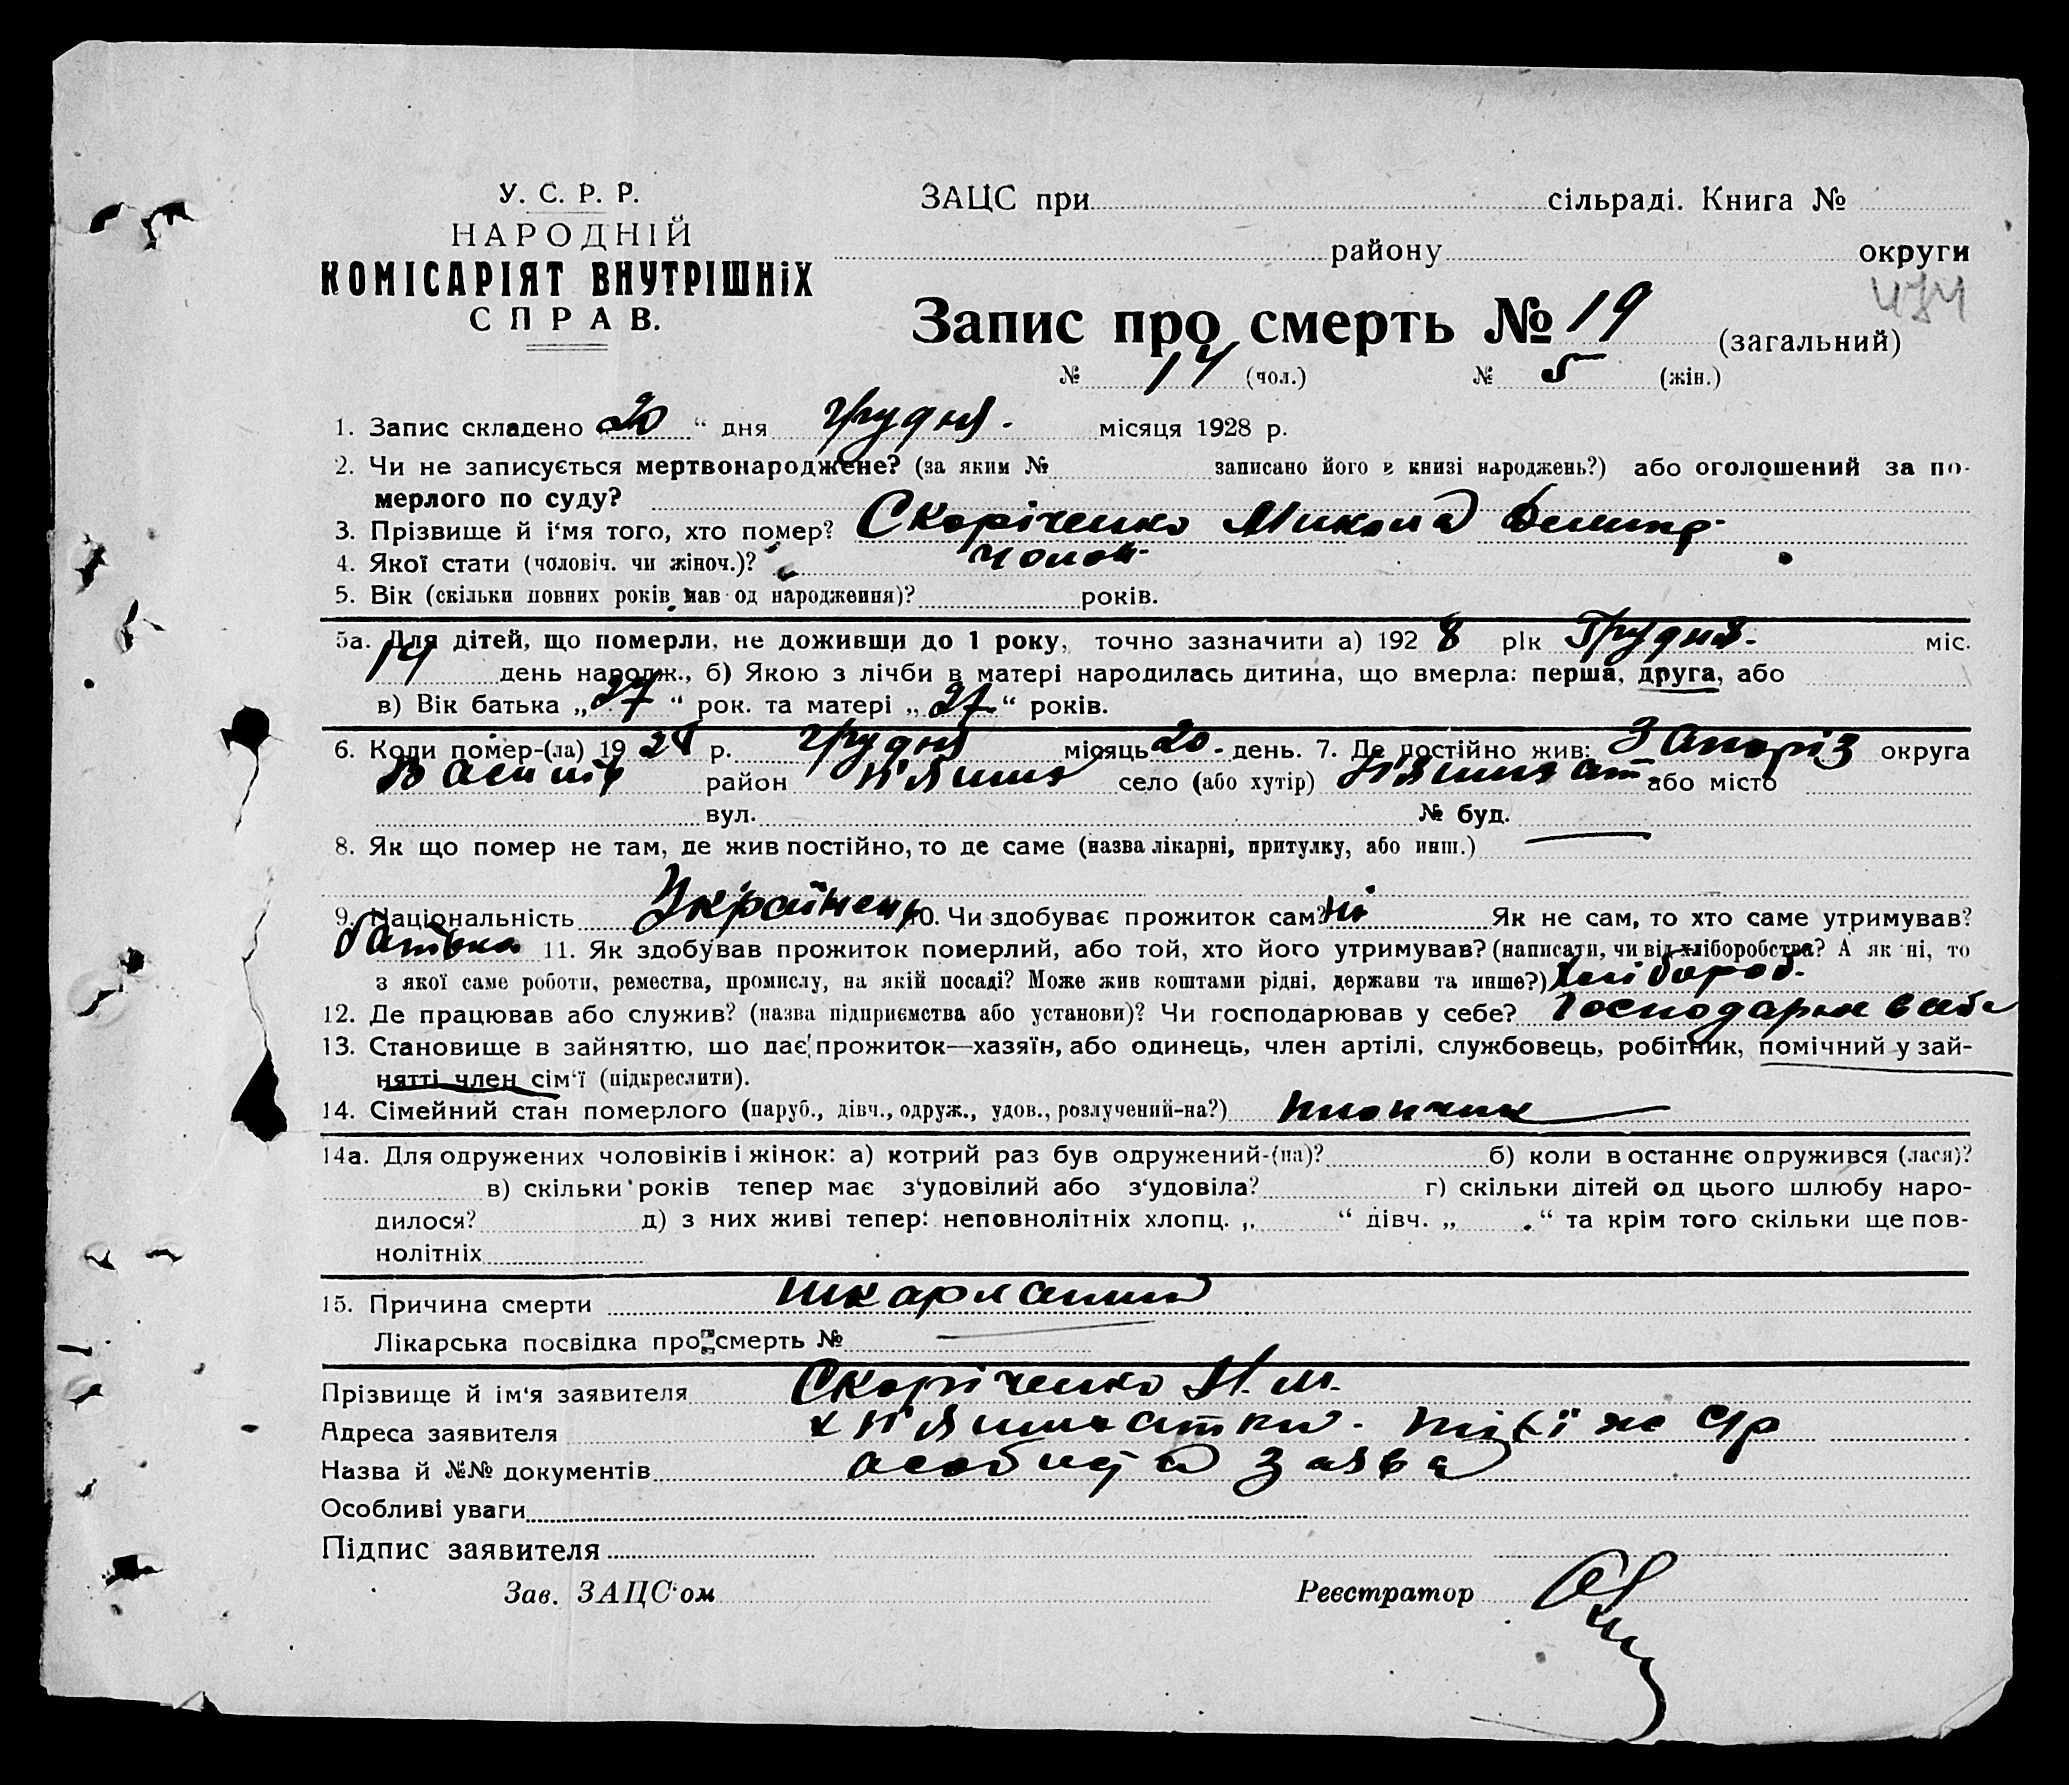 У. С. Р. Р.
НАРОДНІЙ
КОМІСАРІЯТ ВНУТРІШНІХ
СПРАВ.
ЗАЦС при сільраді. Книга №
району округи
Запис про смерть № 19 (загальний)
№ 14 (чол.) № 5 (жін.)
1. Запис складено „20“ дня Грудня місяця 1928 р.
2. Чи не записується мертвонароджене? (за яким № записано його в книзі народжень?) або оголошений за по-
мерлого по суду?
3. Прізвище й і‘мя того, хто помер? Скоріченко Микола Дмитр.
4. Якої стати (чоловіч. чи жіноч.)? чолов.
5. Вік (скільки повних років мав од народження)? років.
5а. Для дітей, що померли, не доживши до 1 року, точно зазначити а) 1928 рік Грудня міс.
14 день народж., б) Якою з лічби в матері народилась дитина, що вмерла: перша, друга, або
в) Вік батька „27“ рок. та матері „27“ років.
6. Коли помер-(ла) 1928 р. Грудня місяць 20 день. 7. Де постійно жив: Запоріз округа
Васипір район село (або хутір) або місто
вул. № буд.
8. Як що помер не там, де жив постійно, то де саме (назва лікарні, притулку, або инш.)
9. Національність Українець 10. Чи здобуває прожиток сам? ні Як не сам, то хто саме утримував?
батько 11. Як здобував прожиток померлий, або той, хто його утримував? (написати, чи від хліборобства? А як ні, то
з якої саме роботи, ремества, промислу, на якій посаді? Може жив коштами рідні, держави та инше?) хлібороб.
12. Де працював або служив? (назва підприємства або установи)? Чи господарював у себе? Господарює в себе
13. Становище в зайняттю, що дає прожиток—хазяїн, або одинець, член артілі, службовець, робітник, помічний у зай-
нятті член сім‘ї (підкреслити).
14. Сімейний стан померлого (паруб., дівч., одруж., удов., розлучений-на?) хлопчик
14а. Для одружених чоловіків і жінок: а) котрий раз був одружений-(на)? б) коли в останнє одружився (лася)?
в) скільки років тепер має з‘удовілий або з‘удовіла? г) скільки дітей од цього шлюбу наро-
дилося? д) з них живі тепер: неповнолітніх хлопц. „ “ дівч. „ “ та крім того скільки ще пов-
нолітніх
15. Причина смерти шкарлатина
Лікарська посвідка про смерть №
Прізвище й ім‘я заявителя Скоріченко
Адреса заявителя
Назва й №№ документів особиста заява
Особливі уваги
Підпис заявителя
Зав. ЗАЦС‘ом Реєстратор